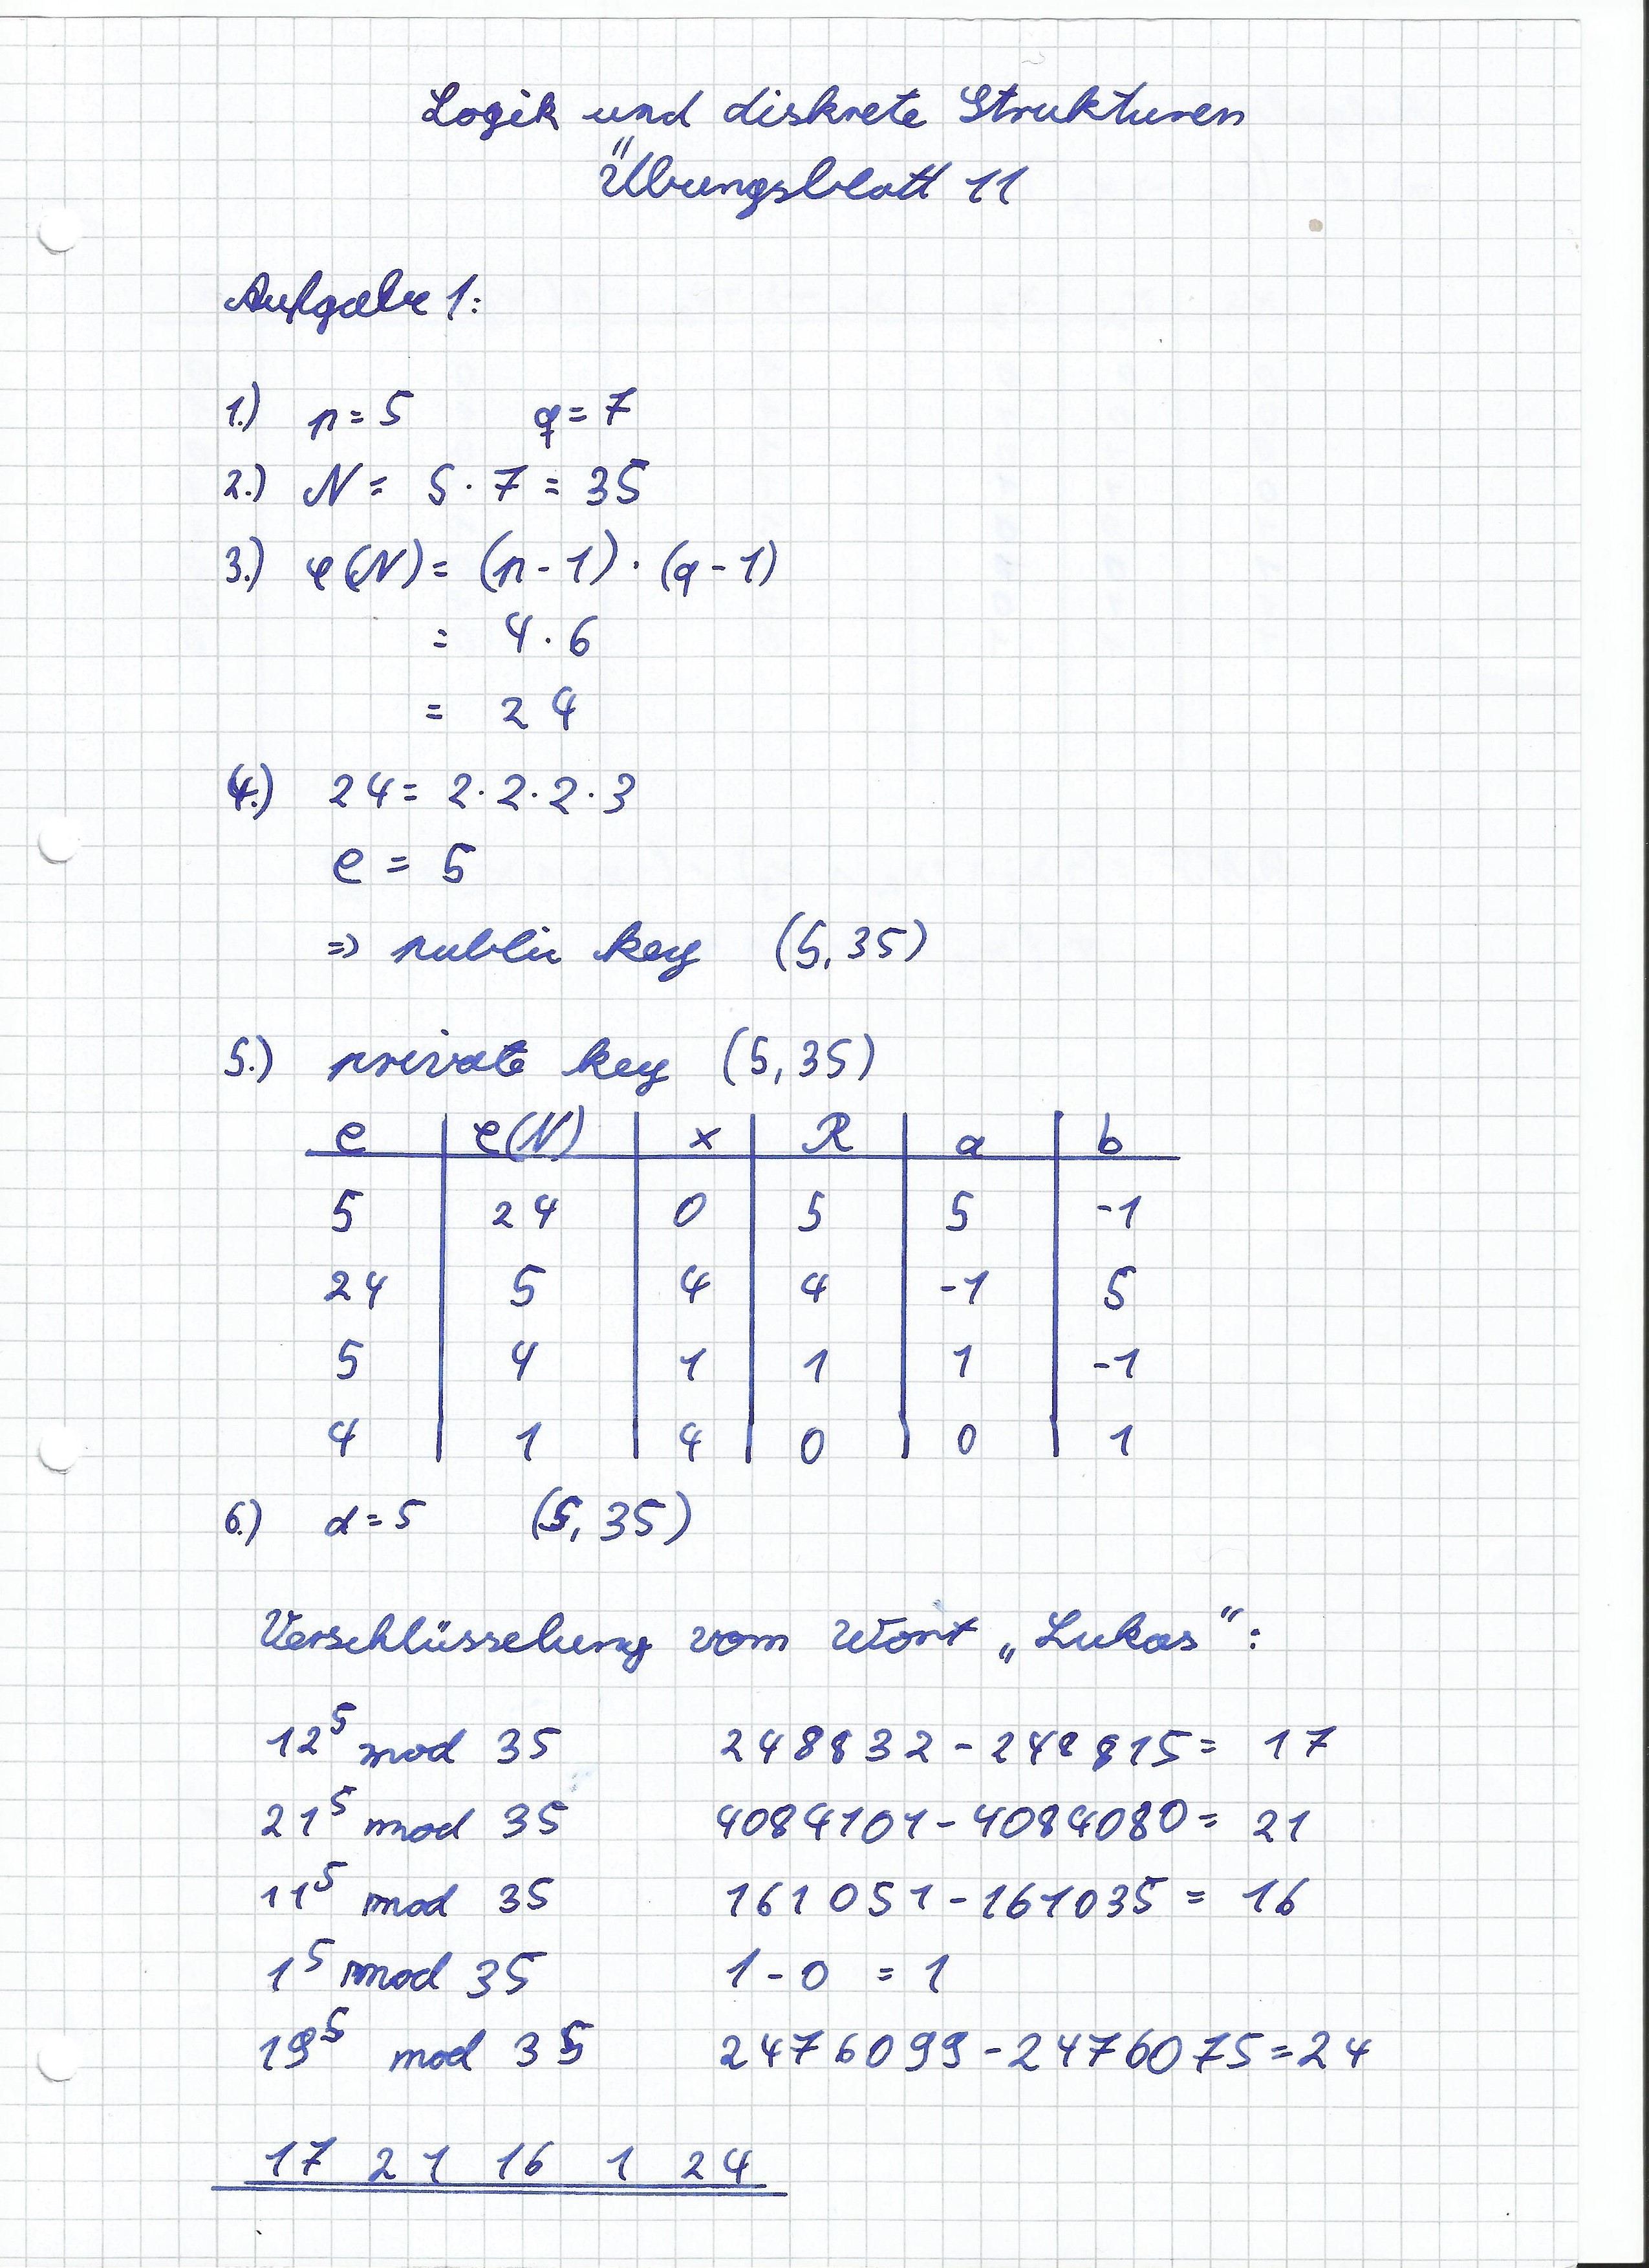 Logik und diskrete Strukturen
Übungsblatt 11
Aufgabe 1:
1.) p = 5 q = 7
2.) N = 5 · 7 = 35
3.) φ(N) = (p - 1) · (q - 1)
= 4 · 6
= 24
4.) 24 = 2 · 2 · 2 · 3
e = 5
=> public key (5, 35)
5.) private key (5, 35)
e φ(N) x R a b
5 24 0 5 5 -1
24 5 4 4 -1 5
5 4 1 1 1 -1
4 1 4 0 0 1
6.) d = 5 (5, 35)
Verschlüsselung vom Wort „Lukas“:
12⁵ mod 35 248832 - 248815 = 17
21⁵ mod 35 4084101 - 4084080 = 21
11⁵ mod 35 161051 - 161035 = 16
1⁵ mod 35 1 - 0 = 1
19⁵ mod 35 2476099 - 2476075 = 24
17 21 16 1 24